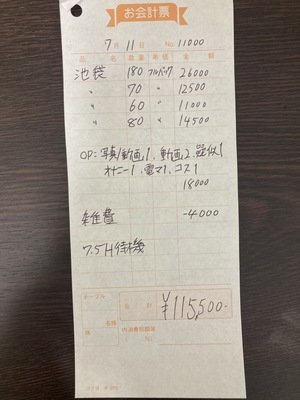 お会計票
7月11日 No. 11000
品名 数量 単価 金額
池袋 180 フルバック 26000
〃 70 〃 12500
〃 60 〃 11000
〃 80 〃 14500
OP:写真/動画,1、動画,2、疑似1
オナニー1、電マ1、コス1
18000
雑費 -4000
7.5H待機
テーブル
合計 ¥115,500-
名様
内消費税額等
係 No.